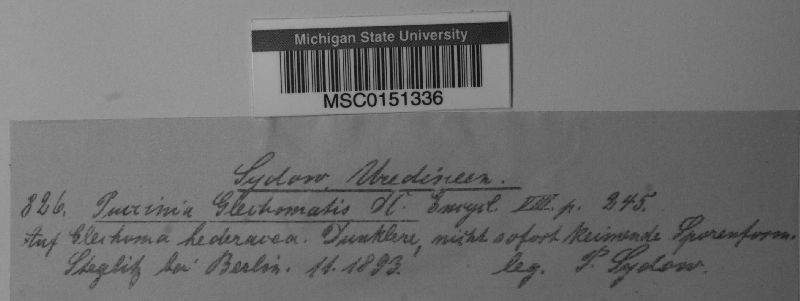 Michigan State University
MSC0151336
Sydow, Uredineen.
826. Puccinia Glechomatis DC. Encycl. VIII. p. 245.
Auf Glechoma hederacea. Dunklere, nicht sofort keimende Sporenform.
Steglitz bei Berlin. 11.1893. leg. P. Sydow.